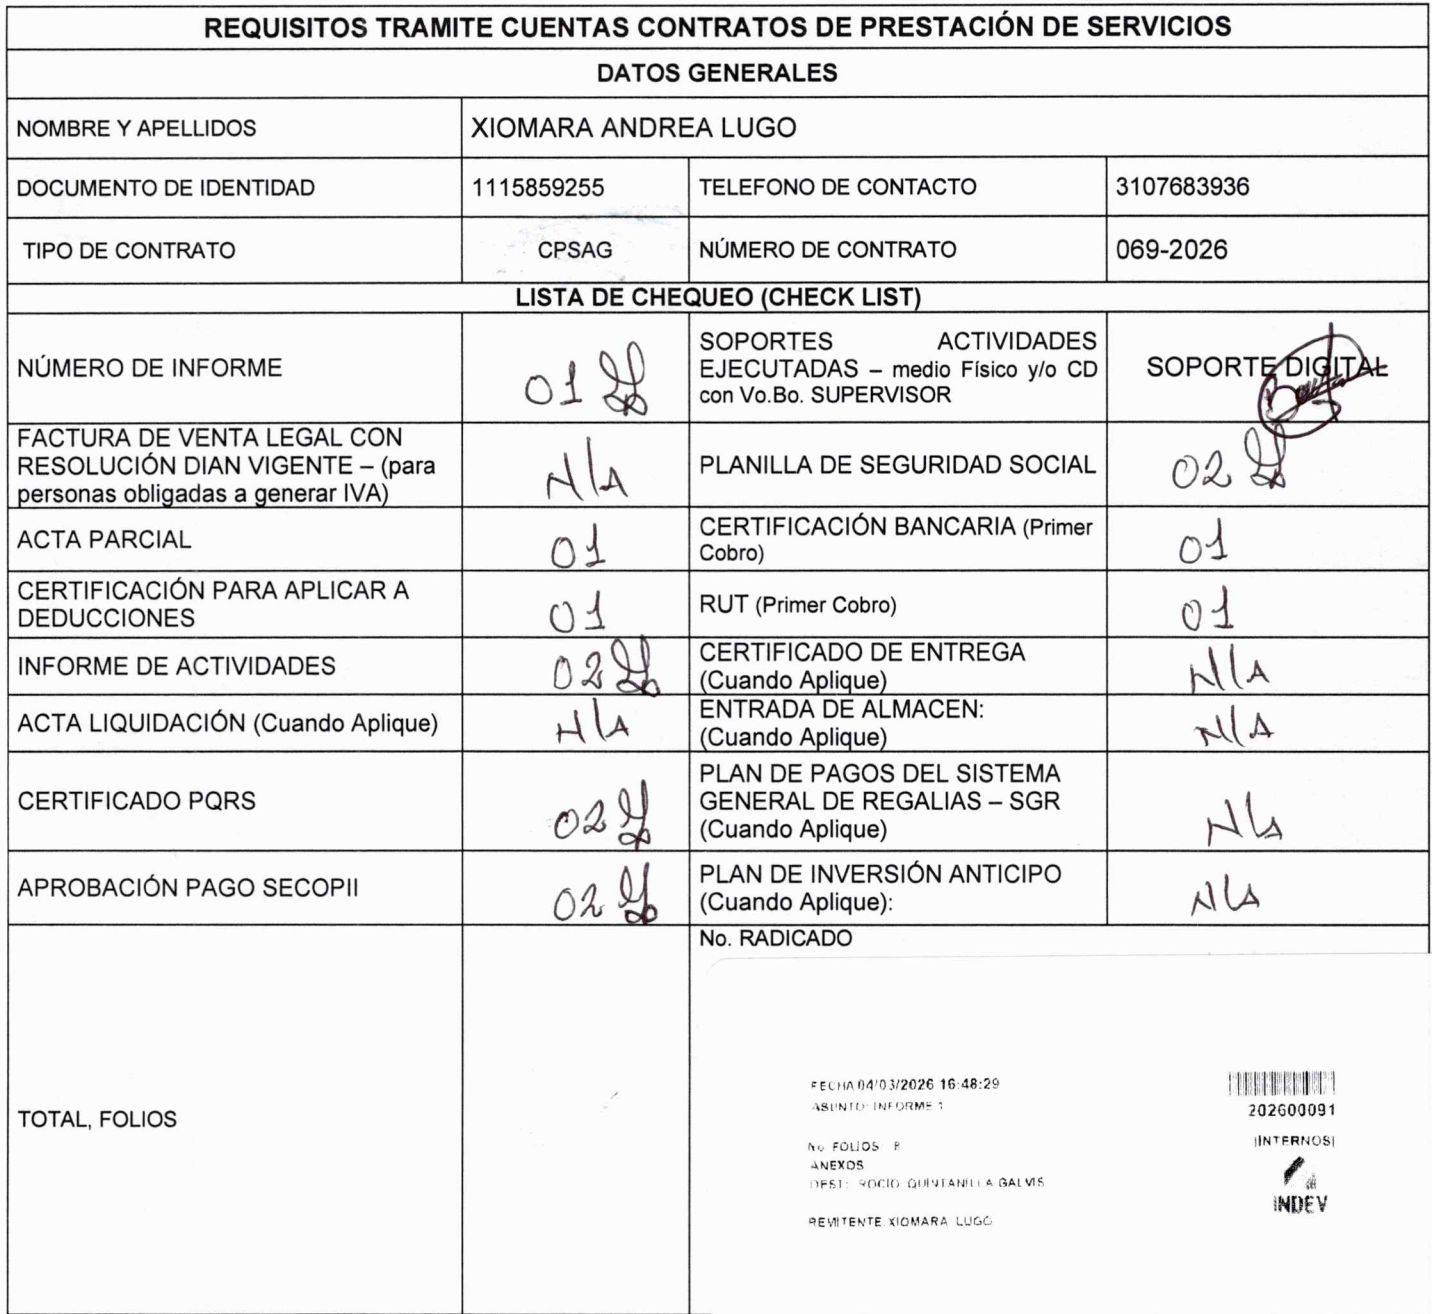 REQUISITOS TRAMITE CUENTAS CONTRATOS DE PRESTACIÓN DE SERVICIOS
DATOS GENERALES
NOMBRE Y APELLIDOS
XIOMARA ANDREA LUGO
DOCUMENTO DE IDENTIDAD
1115859255
TELEFONO DE CONTACTO
3107683936
TIPO DE CONTRATO
CPSAG
NÚMERO DE CONTRATO
069-2026
LISTA DE CHEQUEO (CHECK LIST)
NÚMERO DE INFORME
01
SOPORTES ACTIVIDADES
EJECUTADAS – medio Físico y/o CD
con Vo.Bo. SUPERVISOR
SOPORTE DIGITAL
FACTURA DE VENTA LEGAL CON
RESOLUCIÓN DIAN VIGENTE – (para
personas obligadas a generar IVA)
N/A
PLANILLA DE SEGURIDAD SOCIAL
02
ACTA PARCIAL
01
CERTIFICACIÓN BANCARIA (Primer
Cobro)
01
CERTIFICACIÓN PARA APLICAR A
DEDUCCIONES
01
RUT (Primer Cobro)
01
INFORME DE ACTIVIDADES
02
CERTIFICADO DE ENTREGA
(Cuando Aplique)
N/A
ACTA LIQUIDACIÓN (Cuando Aplique)
N/A
ENTRADA DE ALMACEN:
(Cuando Aplique)
N/A
CERTIFICADO PQRS
02
PLAN DE PAGOS DEL SISTEMA
GENERAL DE REGALIAS – SGR
(Cuando Aplique)
N/A
APROBACIÓN PAGO SECOPII
02
PLAN DE INVERSIÓN ANTICIPO
(Cuando Aplique):
N/A
TOTAL, FOLIOS
No. RADICADO
FECHA 04/03/2026 16:48:29
ASUNTO: INFORME 1
No FOLIOS
ANEXOS
DEST: ROCIO QUINTANILLA GALVIS
REMITENTE XIOMARA LUGO
202600091
|INTERNOS|
INDEV